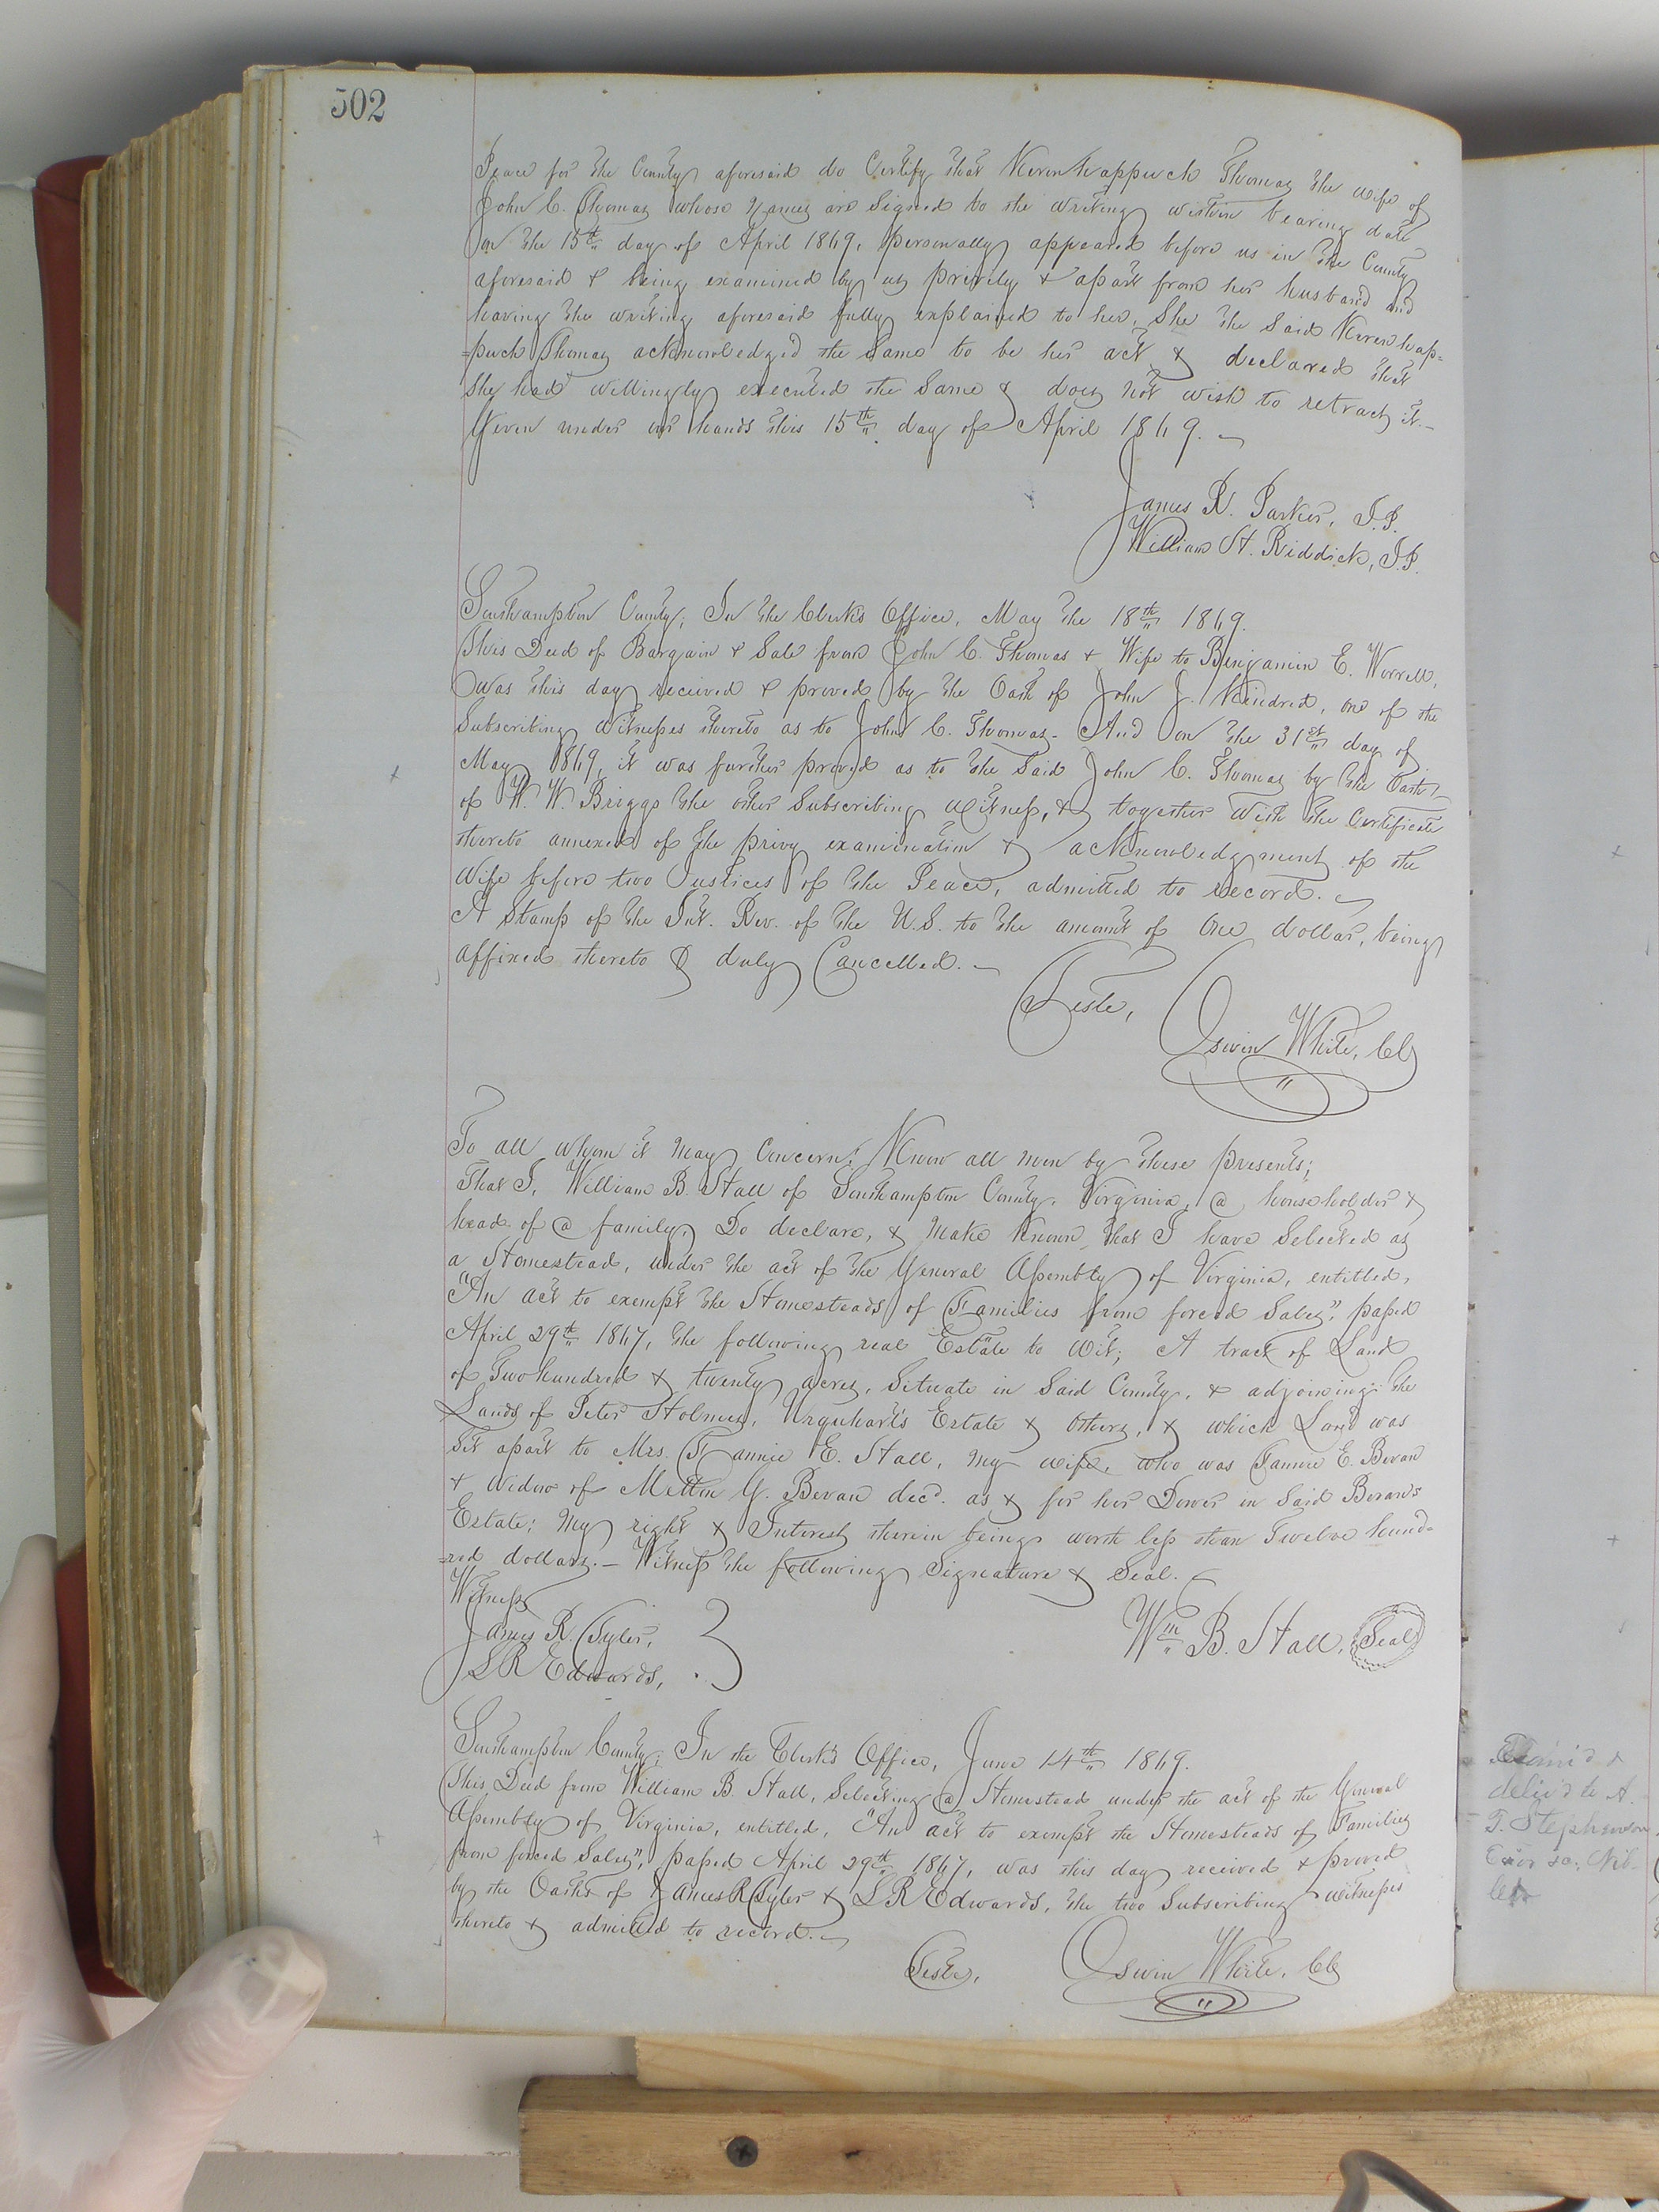 502
Peace for the County aforesaid do Certify that Kerenhappuch Thomas the wife of
John C. Thomas whose names are signed to the writing within bearing date
on the 15th day of April 1869, personally appeared before us in the County
aforesaid & being examined by us privily & apart from her husband and
having the writing aforesaid fully explained to her, She the Said Kerenhap=
=puch Thomas acknowledged the Same to be her act & declared that
She had willingly executed the Same & does not wish to retract it.—
Given under our hands this 15th day of April 1869.—
James R. Parker, J.P.
William H. Riddick, J.P.
Southampton County; In the Clerk's Office, May the 18th 1869.
This Deed of Bargain & Sale from John C. Thomas & Wife to Benjamin E. Worrell,
was this day received & proved by the Oath of John J. Kindred, one of the
Subscribing Witnesses thereto as to John C. Thomas. And on the 31st day of
May 1869, it was further proved as to the Said John C. Thomas by the Oath
of W. W. Briggs the other Subscribing witness, & together with the Certificate
thereto annexed of the privy examination & acknowledgment of the
Wife before two Justices of the Peace, admitted to record.—
A Stamp of the Int. Rev. of the U.S. to the amount of One dollar, being
affixed thereto & duly Cancelled.—
Teste,
Oswin White, Clk
To all whom it May Concern: Know all men by these presents;
That I, William B. Hall of Southampton County, Virginia, a householder &
head of a family, Do declare, & Make Known, that I have Selected as
a Homestead, under the act of the General Assembly of Virginia, entitled,
"An act to exempt the Homesteads of Families from forced Sales", passed
April 29th 1867, the following real Estate to Wit; A tract of Land
of Two hundred & twenty acres, Situate in Said County, & adjoining the
Lands of Peter Holmes, Urquhart's Estate & others, & which Land was
Set apart to Mrs. Fannie E. Hall, my wife, who was Fannie E. Bevan
& Widow of Melton G. Bevan decd. as & for her Dower in Said Bevan's
Estate; My right & Interest therein being worth less than Twelve hund=
=red dollars.— Witness the following Signature & Seal.—
Witness
James R. Tyler,
L R Edwards,
Wm B. Hall, Seal
Southampton County; In the Clerk's Office, June 14th 1869.
This Deed from William B. Hall, Selecting a Homestead under the act of the General
Assembly of Virginia, entitled, "An act to exempt the Homesteads of Families
from forced Sales", passed April 29th 1867, was this day received & proved
by the Oaths of James R Tyler & L R Edwards, the two Subscribing witnesses
thereto & admitted to record.—
Teste,
Oswin White, Clk
Exami'd &
deliv'd to A.
T. Stephenson